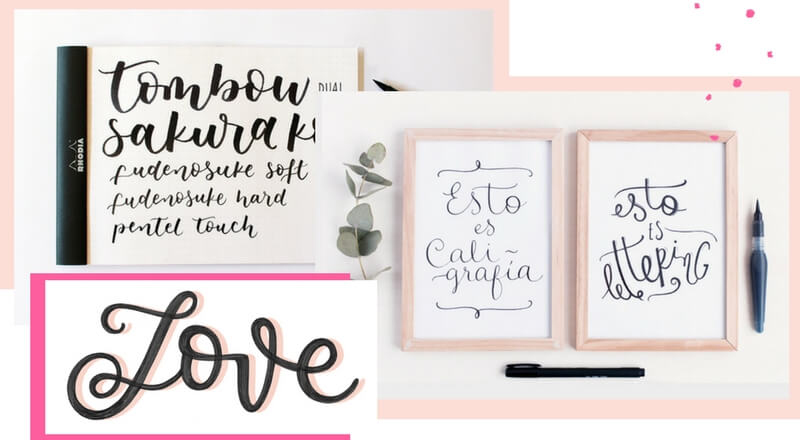 tombow
DUAL
sakura k
fudenosuke soft
fudenosuke hard
pentel touch
RHODIA
Esto
es
Cali-
grafía
esto
es
lettering
Love